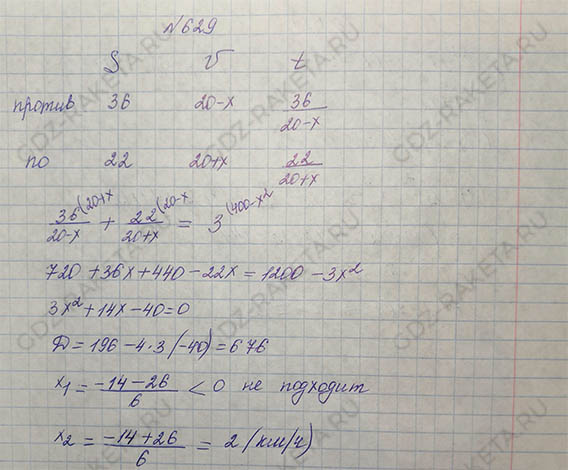 №629
S V t
против 36 20-x 36/(20-x)
по 22 20+x 22/(20+x)
36/(20-x) (20+x + 22/(20+x) (20-x = 3 (400-x²
720+36x+440-22x=1200-3x²
3x²+14x-40=0
D=196-4·3(-40)=676
x₁=(-14-26)/6 <0 не подходит
x₂=(-14+26)/6=2(км/ч)
GDZ-RAKETA.RU
GDZ-RAKETA.RU
GDZ-RAKETA.RU
GDZ-RAKETA.RU
GDZ-RAKETA.RU
GDZ-RAKETA.RU